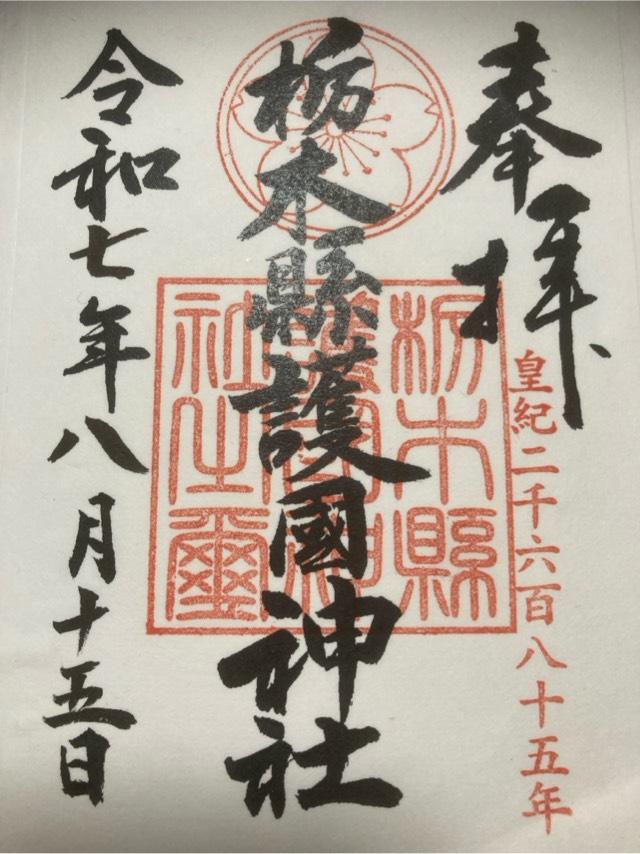 奉拝
皇紀二千六百八十五年
栃木縣護國神社
栃木縣護國神社之璽
令和七年八月十五日